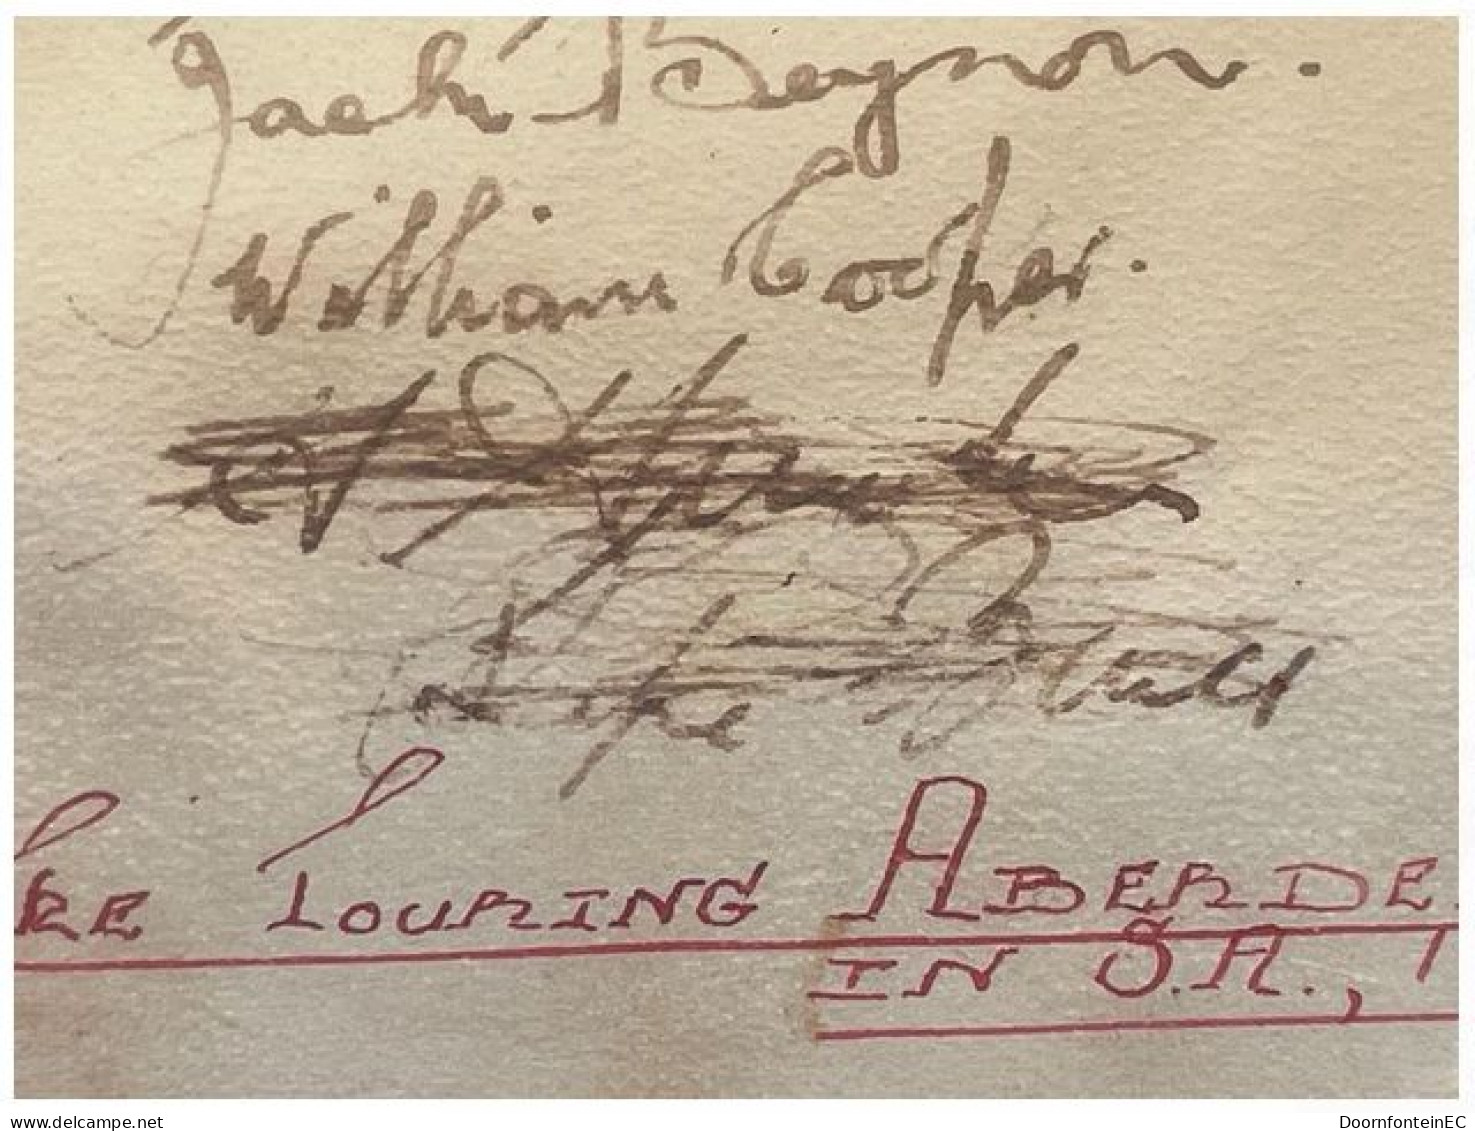 Jack Beynon.
William Cooper.
The Touring Aberde
in S.A., 1
www.delcampe.net
DoornfonteinEC